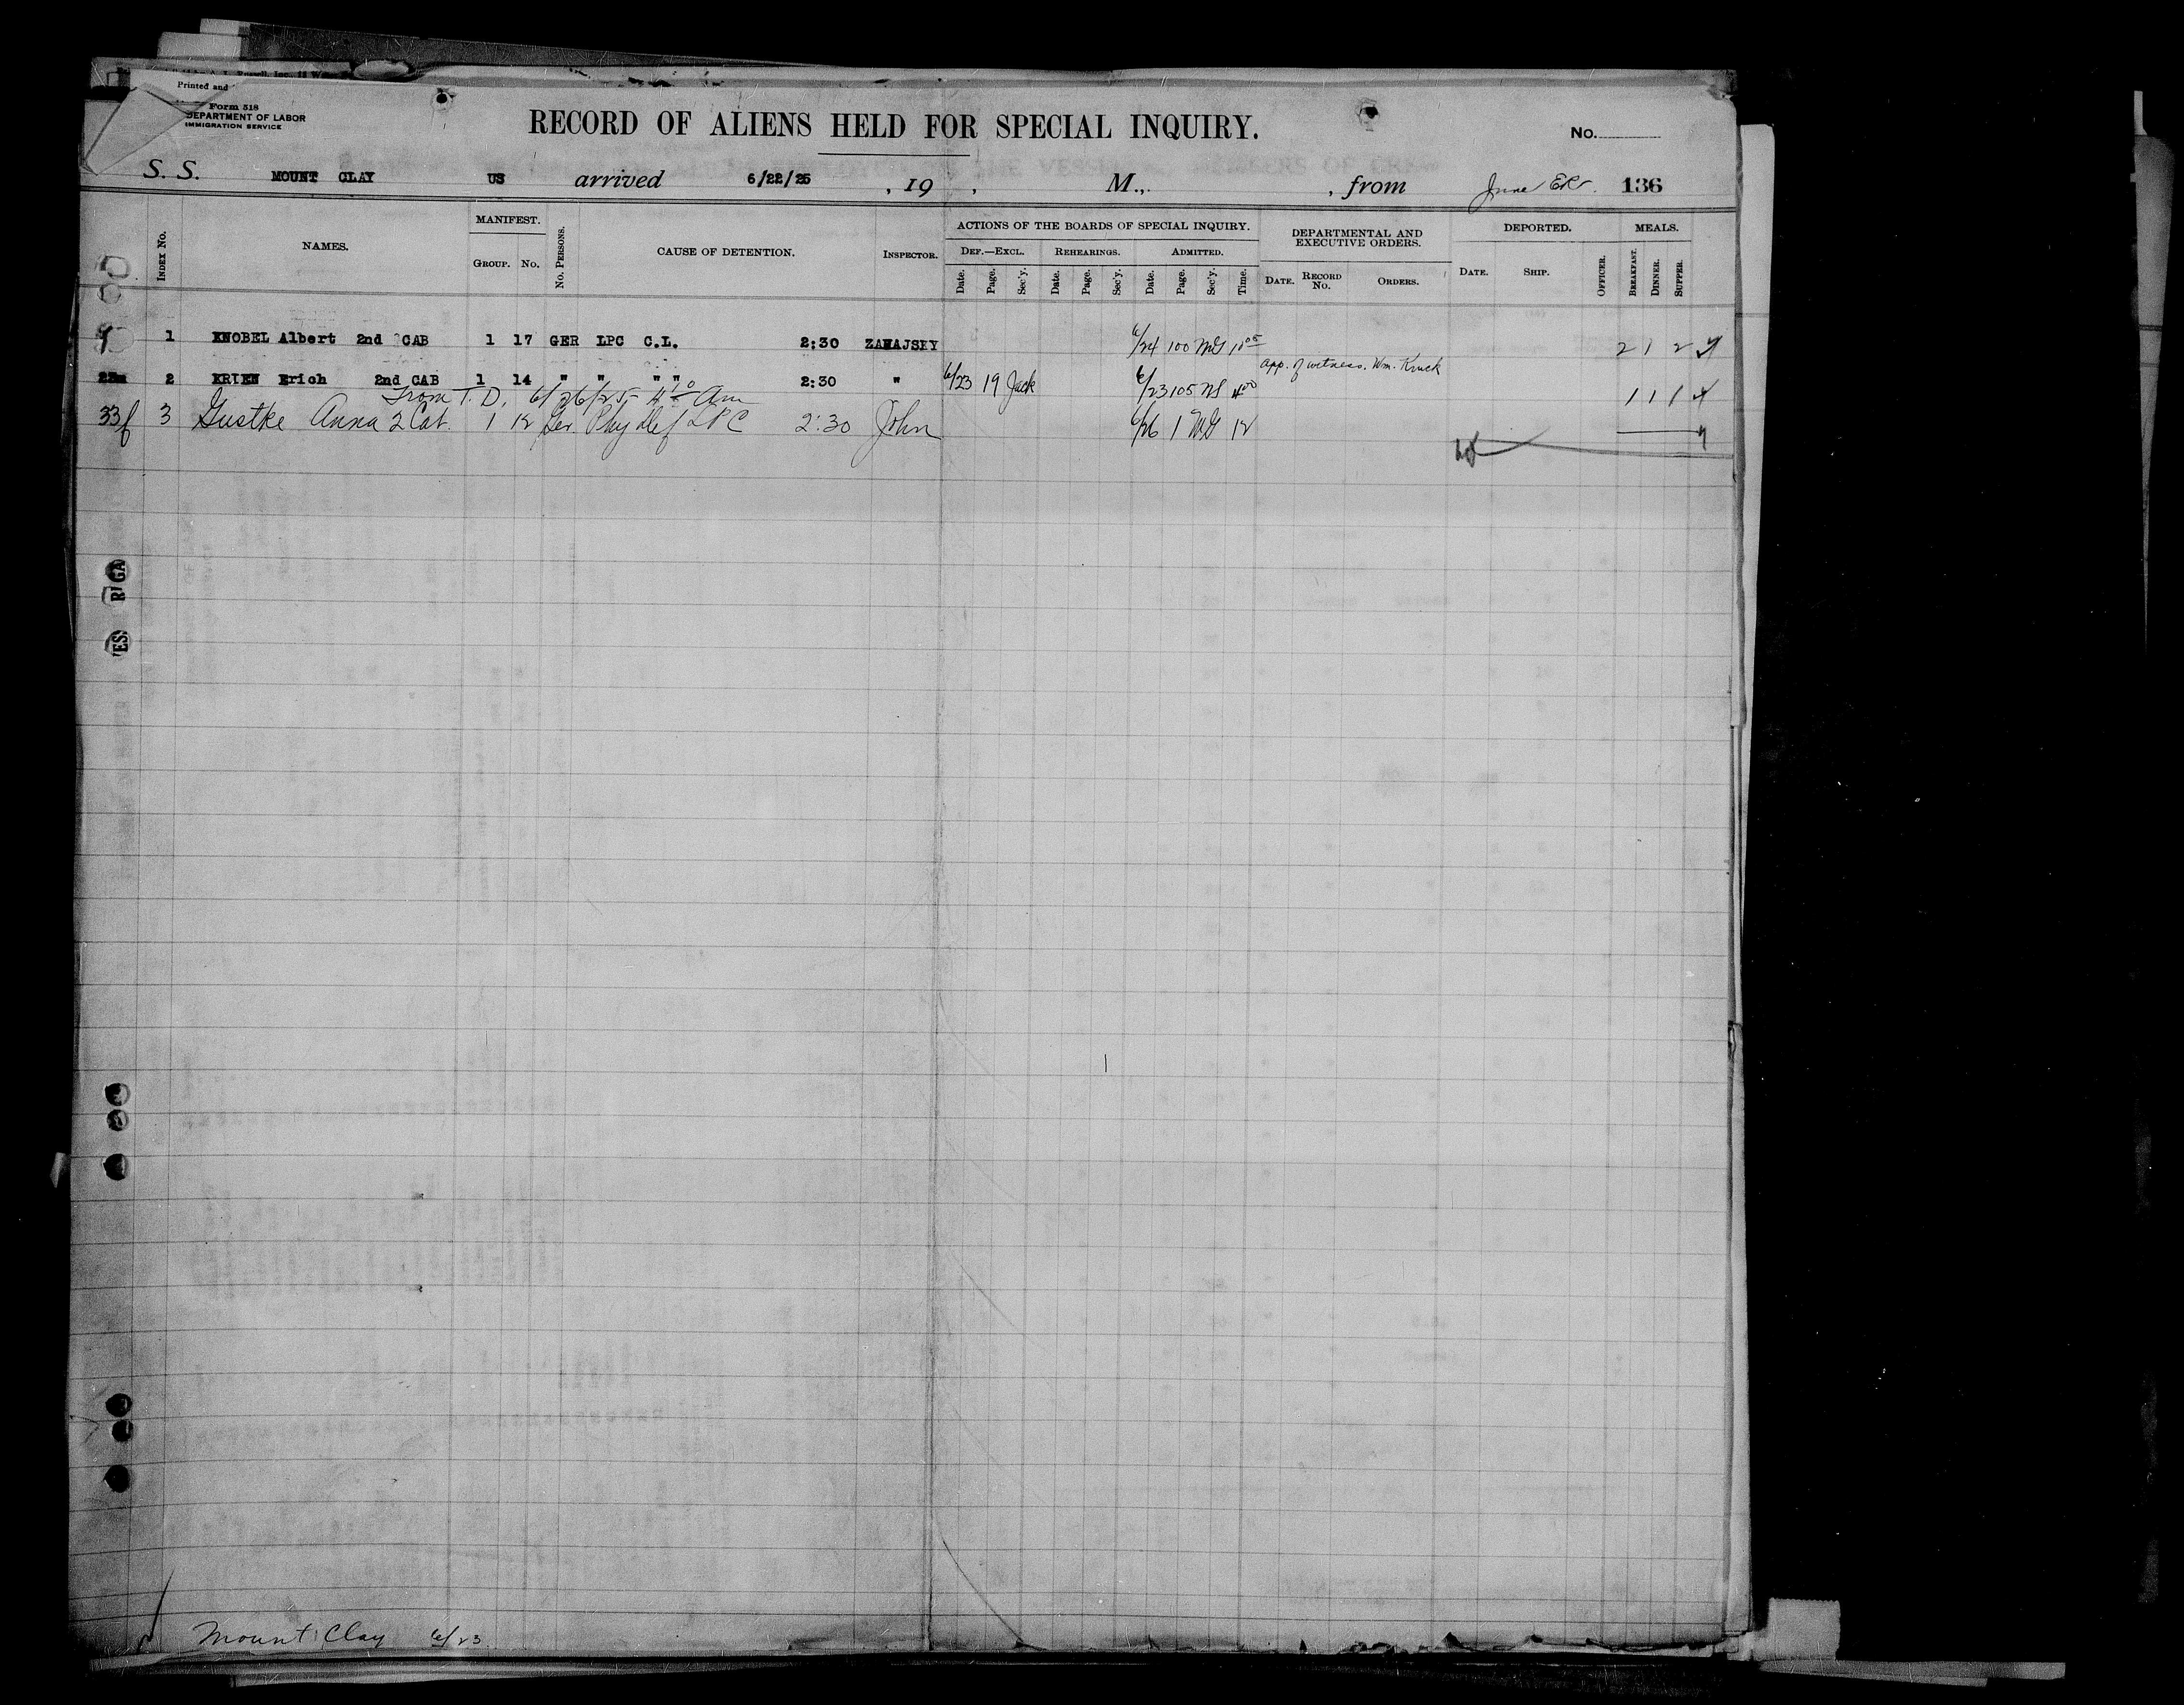 Printed and
Form 518
DEPARTMENT OF LABOR
IMMIGRATION SERVICE
RECORD OF ALIENS HELD FOR SPECIAL INQUIRY.
No.
S. S. MOUNT CLAY US arrived 6/22/25 , 19 , M., , from June 136
INDEX No. NAMES. MANIFEST. GROUP. No. No. PERSONS. CAUSE OF DETENTION. INSPECTOR. ACTIONS OF THE BOARDS OF SPECIAL INQUIRY. DEF.—EXCL. Date. Page. Sec'y. REHEARINGS. Date. Page. Sec'y. ADMITTED. Date. Page. Sec'y. Time. DEPARTMENTAL AND EXECUTIVE ORDERS. DATE. RECORD No. ORDERS. DEPORTED. DATE. SHIP. OFFICER. MEALS. BREAKFAST. DINNER. SUPPER.
1 KNOBEL Albert 2nd CAB 1 17 GER LPC C.L. 2:30 ZAHAJSKY 6/24 100 MG 11 05 2 1 2
app. of witness. Wm. Kruck
23m 2 KRIEN Erich 2nd CAB 1 14 " " " " 2:30 " 6/23 19 Jack 6/23 105 NS 4 00 1 1 1
From T. D. 6/26/25 11 10 Am
33f 3 Gustke Anna 2 Cab. 1 12 Ger. Phy def LPC 2:30 John 6/26 1 MG 12
Mount Clay 6/23